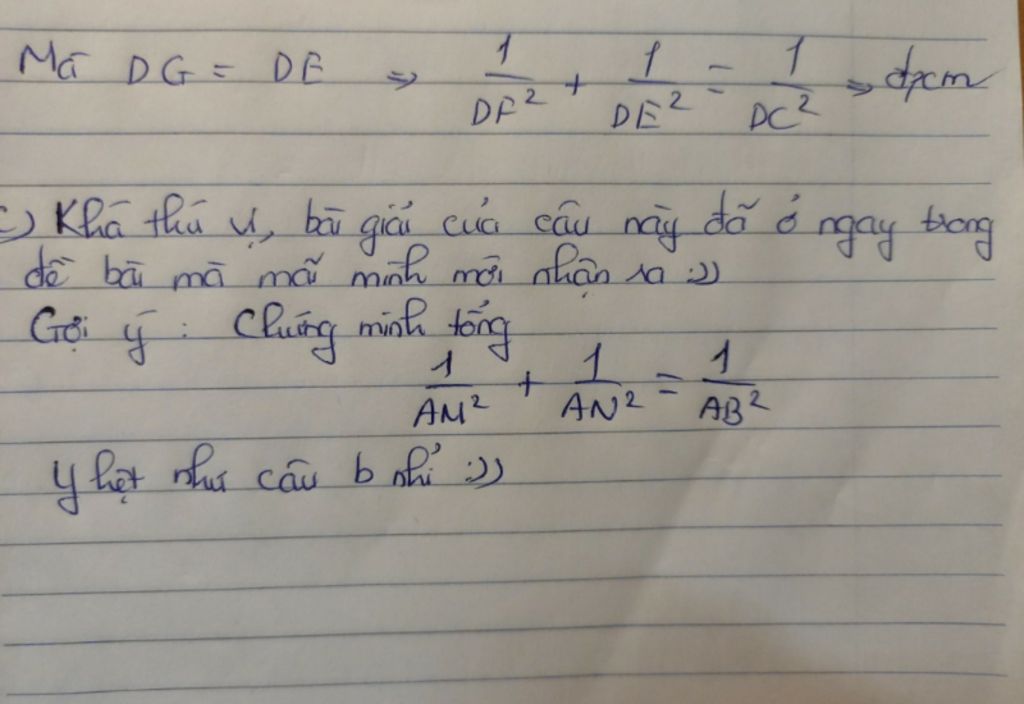 Mà DG = DE => 1/DF² + 1/DE² = 1/DC² => đpcm
c) Khá thú vị, bài giải của câu này đã ở ngay trong
đề bài mà mãi mình mới nhận ra :))
Gợi ý : Chứng minh tổng
1/AM² + 1/AN² = 1/AB²
Y hệt như câu b nhỉ :))